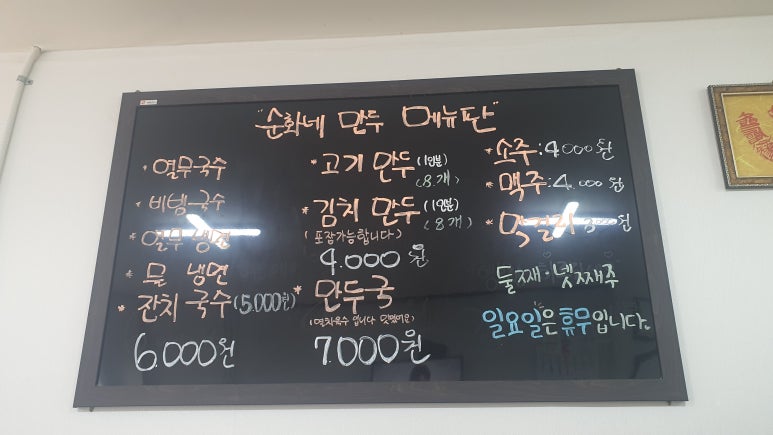 "순화네 만두 메뉴판"
* 열무국수
* 비빔국수
* 열무 냉면
* 물 냉면
* 잔치국수(5.000원)
6.000원
* 고기 만두(1인분)
(8개)
* 김치 만두(1인분)
(8개)
(포장가능합니다)
4.000원
* 만두국
(멸치육수 입니다 맛있어요)
7.000원
* 소주:4000원
* 맥주:4.000원
* 막걸리 3000원
둘째·넷째주
일요일은 휴무입니다.